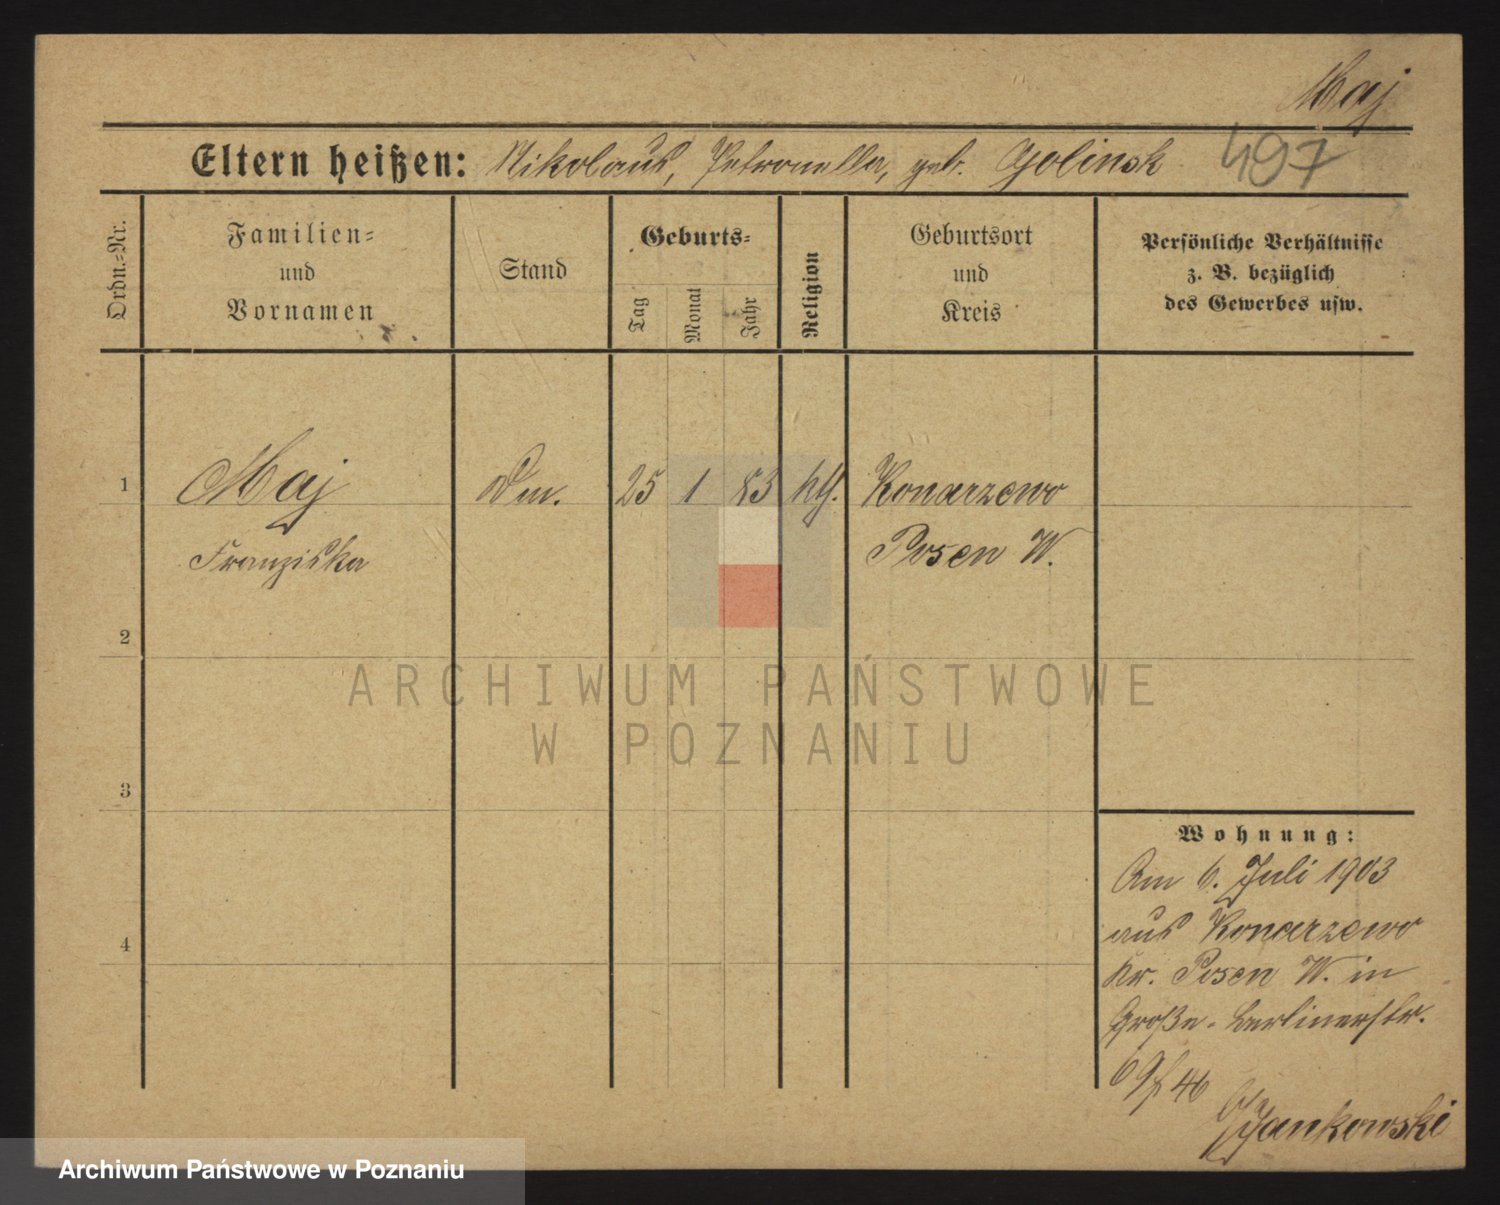 Maj
Eltern heißen: Nikolaus, Petronella, geb. Golinsk 497
Ordn.-Nr.
Familien-
und
Vornamen
Stand
Geburts-
Tag
Monat
Jahr
Religion
Geburtsort
und
Kreis
Persönliche Verhältnisse
z. B. bezüglich
des Gewerbes usw.
1 Maj Dm. 25 1 83 kth. Konarzewo
Franziska Posen W.
2
3
4
ARCHIWUM PAŃSTWOWE
W POZNANIU
Wohnung:
Am 6. Juli 1903
aus Konarzewo
Kr. Posen W. in
Große-Berlinerstr.
Jankowski
Archiwum Państwowe w Poznaniu